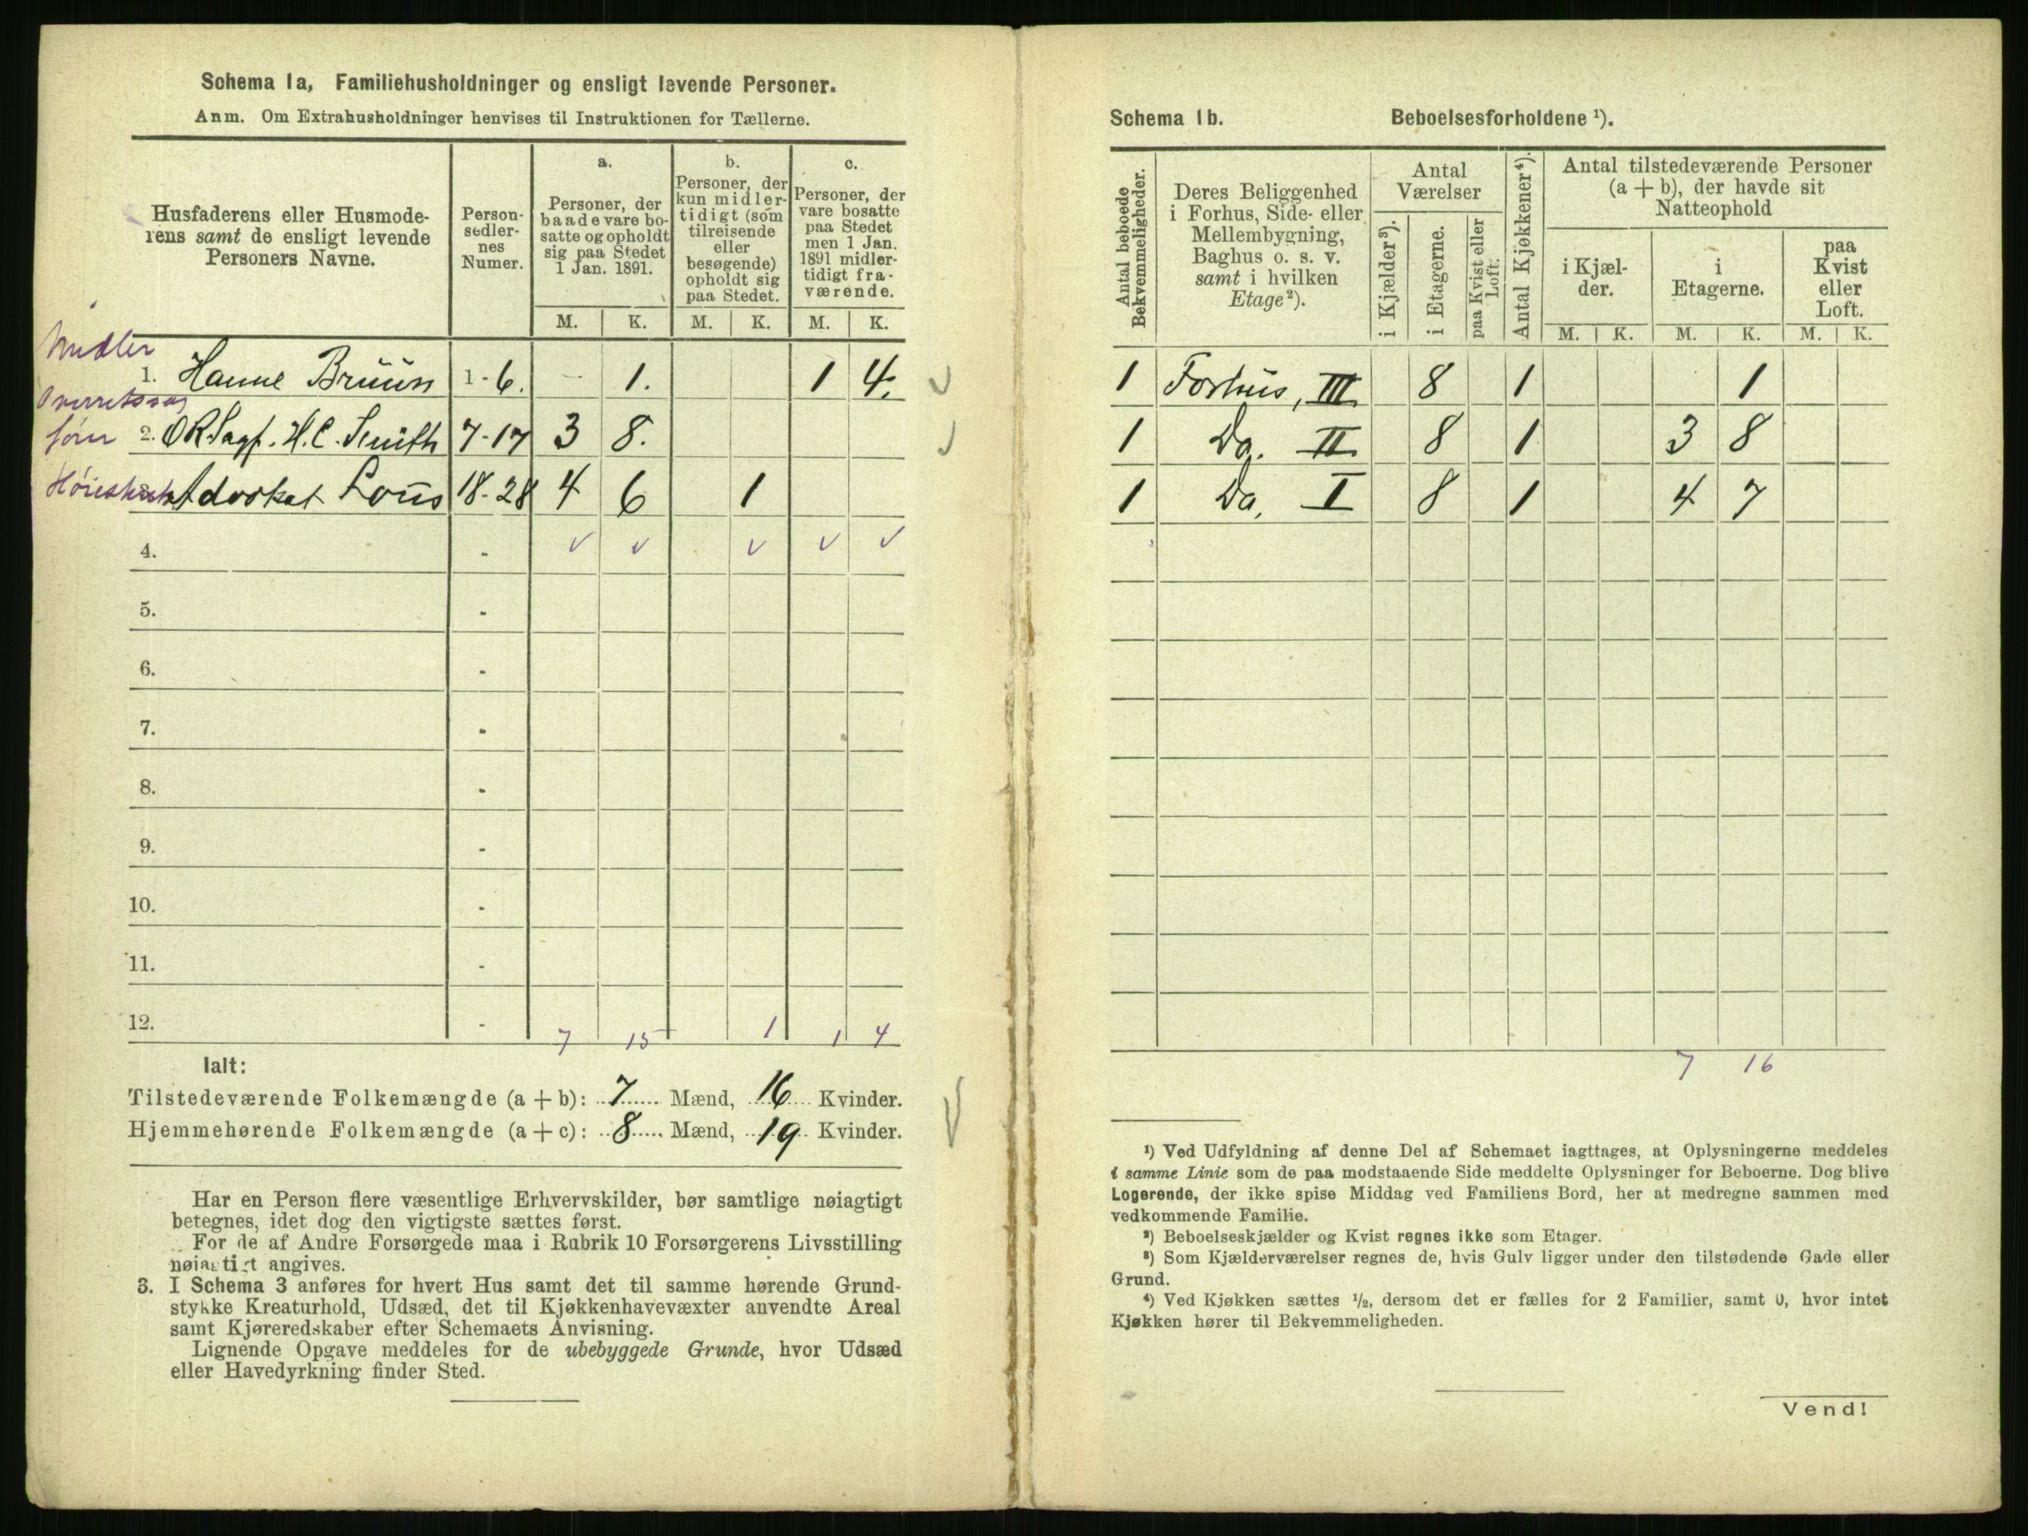 Schema 1a, Familiehusholdninger og ensligt levende Personer.
Anm. Om Extrahusholdninger henvises til Instruktionen for Tællerne.
Husfaderens eller Husmoderens samt de ensligt levende Personers Navne.
Personsedlernes Numer.
a. Personer, der baade vare bosatte og opholdt sig paa Stedet 1 Jan. 1891.
b. Personer, der kun midlertidigt (som tilreisende eller besøgende) opholdt sig paa Stedet.
c. Personer, der vare bosatte paa Stedet men 1 Jan. 1891 midlertidigt fraværende.
M. K. M. K. M. K.
1. Hanne Bruun 1-6. - 1. 1 4.
2. ORSagf. H.C. Smith 7-17 3 8.
3. Høiest Advokat Lous 18-28 4 6 1
4. - v v v v v
5. -
6. -
7. -
8. -
9. -
10. -
11. -
12. - 7 15 1 1 4
Ialt:
Tilstedeværende Folkemængde (a + b): 7 Mænd, 16 Kvinder.
Hjemmehørende Folkemængde (a + c): 8 Mænd, 19 Kvinder.
Har en Person flere væsentlige Erhvervskilder, bør samtlige nøiagtigt
betegnes, idet dog den vigtigste sættes først.
For de af Andre Forsørgede maa i Rubrik 10 Forsørgerens Livsstilling
nøiagtigt angives.
3. I Schema 3 anføres for hvert Hus samt det til samme hørende Grund-
stykke Kreaturhold, Udsæd, det til Kjøkkenhavevæxter anvendte Areal
samt Kjøreredskaber efter Schemaets Anvisning.
Lignende Opgave meddeles for de ubebyggede Grunde, hvor Udsæd
eller Havedyrkning finder Sted.
Schema 1b. Beboelsesforholdene ¹).
Antal beboede Bekvemmeligheder.
Deres Beliggenhed i Forhus, Side- eller Mellembygning, Baghus o. s. v. samt i hvilken Etage²).
Antal Værelser
i Kjælder³).
i Etagerne.
paa Kvist eller Loft.
Antal Kjøkkener⁴).
Antal tilstedeværende Personer (a + b), der havde sit Natteophold
i Kjælder.
i Etagerne.
paa Kvist eller Loft.
M. K. M. K. M. K.
1 Forhus, III 8 1 1
1 Do. II 8 1 3 8
1 Do. I 8 1 4 7
7 16
¹) Ved Udfyldning af denne Del af Schemaet iagttages, at Oplysningerne meddeles
i samme Linie som de paa modstaaende Side meddelte Oplysninger for Beboerne. Dog blive
Logerende, der ikke spise Middag ved Familiens Bord, her at medregne sammen med
vedkommende Familie.
²) Beboelseskjælder og Kvist regnes ikke som Etager.
³) Som Kjælderværelser regnes de, hvis Gulv ligger under den tilstødende Gade eller
Grund.
⁴) Ved Kjøkken sættes ½, dersom det er fælles for 2 Familier, samt 0, hvor intet
Kjøkken hører til Bekvemmeligheden.
Vend!